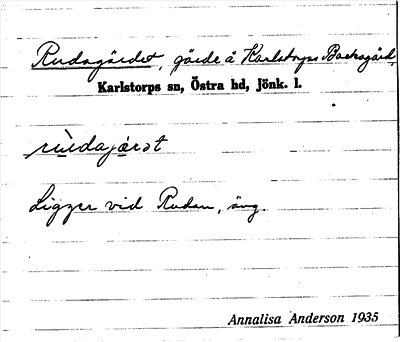 Rudagärdet, gärde å Karlstorps Backegård,
Karlstorps sn, Östra hd, Jönk. l.
Ligger vid Rudan, äng.
Annalisa Anderson 1935